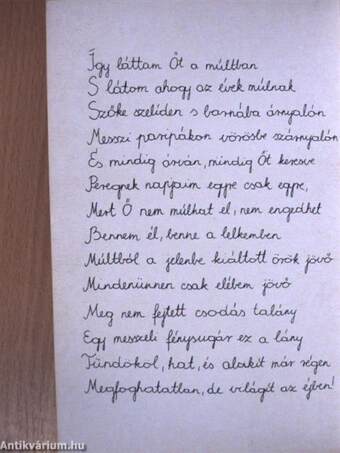 Így láttam Őt a múltban
S látom ahogy az évek múlnak
Szőke szelíden s barnába árnyalón
Messzi paripákon vörösbe szárnyalón
És mindig árván, mindig Őt keresve
Peregnek napjaim egyre csak egyre,
Mert Ő nem múlhat el, nem engedhet
Bennem él, benne a lelkemben
Múltból a jelenbe kiáltott örök jövő
Mindenünnen csak elébem jövő
Meg nem fejtett csodás talány
Egy messzeli fénysugár ez a lány
Tündököl, hat, és alakít már régen
Megfoghatatlan, de világít az éjben!
Antikvárium.hu